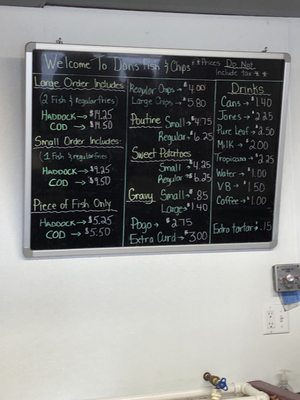 Welcome To Don's Fish & Chips
** Prices Do Not
Include tax **
Large Order Includes:
(2 Fish & Regular fries)
HADDOCK → $14.25
COD → $14.50
Small Order Includes:
(1 Fish & regular fries
HADDOCK → $9.25
COD → $9.50
Piece of Fish Only
HADDOCK → $5.25
COD → $5.50
Regular Chips → $4.00
Large Chips → $5.80
Poutine Small → $4.75
Regular → $6.25
Sweet Potatoes
Small → $4.25
Regular → $6.25
Gravy Small → $.85
Large → $1.40
Pogo → $2.75
Extra Curd → $3.00
Drinks
Cans → $1.40
Jones → $2.25
Pure Leaf → $2.50
Milk → $2.00
Tropicana → $2.25
Water → $1.00
V8 → $1.50
Coffee → $1.00
Extra tartar $.15